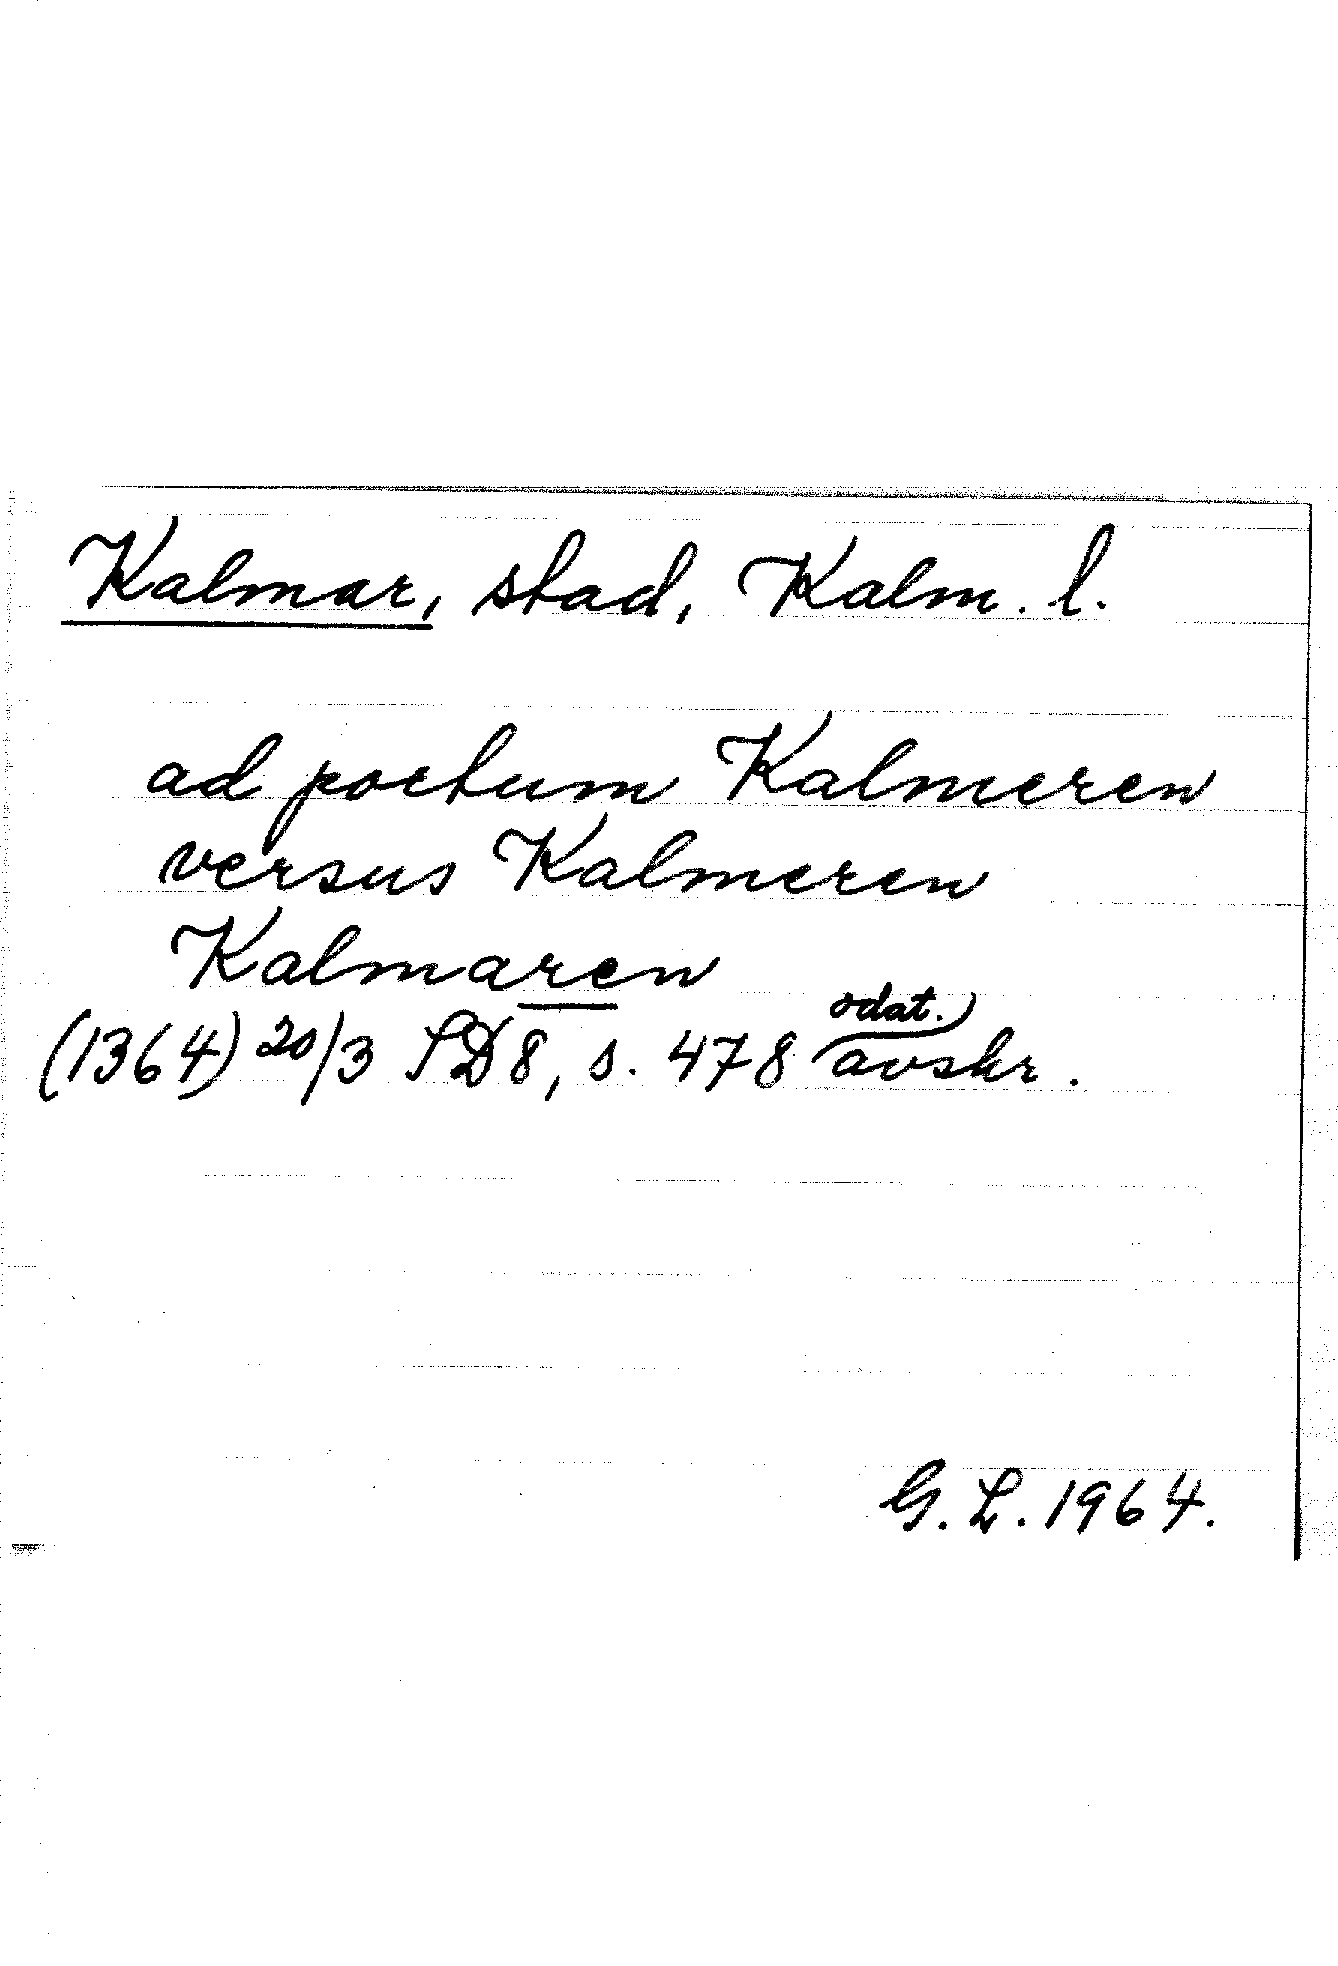 Kalmar, stad, Kalm. l.
ad portum Kalmeren
versus Kalmeren
Kalmaren
(1364) 20/3 SD 8, s. 478 odat. avskr.
G. L. 1964.